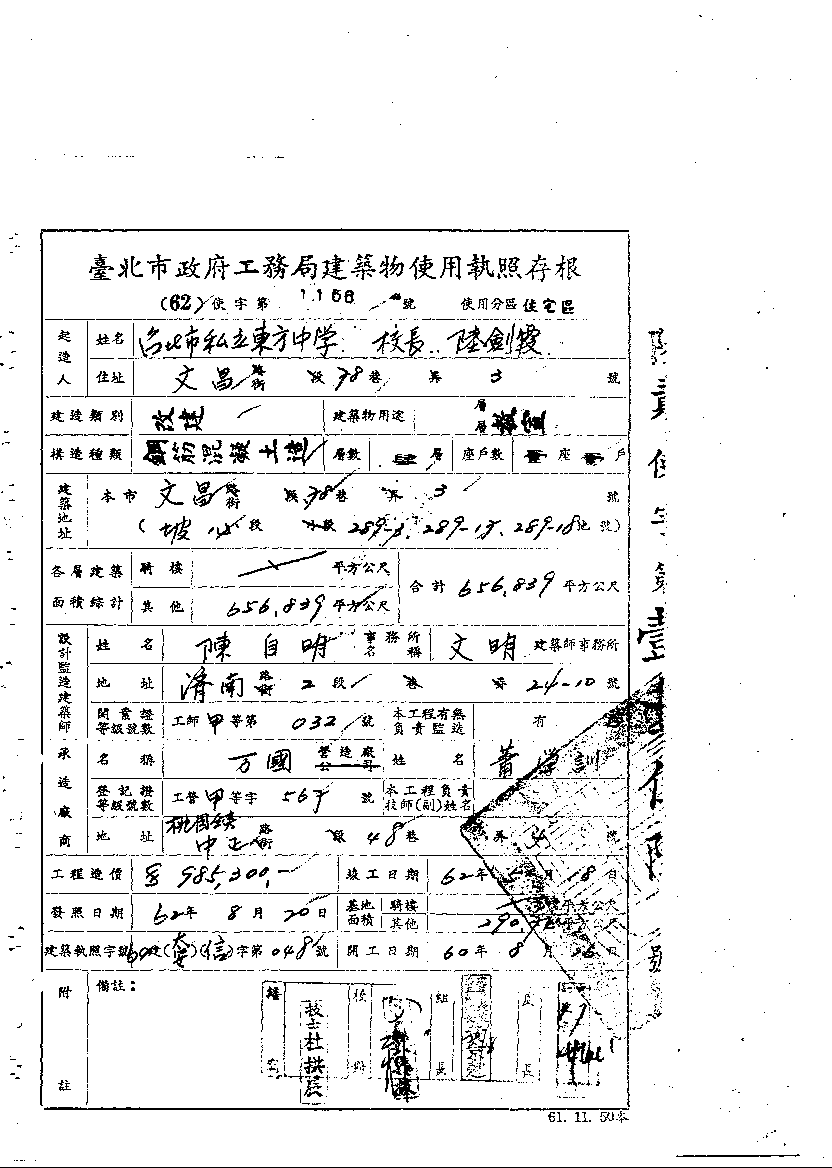 臺北市政府工務局建築物使用執照存根
(62) 使字第 1156 號 使用分區 住宅區
起造人 姓名 台北市私立東方中学 校長 陸劍霞
住址 文昌 路街 段 78 巷 弄 3 號
建造類別 改建 建築物用途 層層 教室
構造種類 鋼筋混凝土造 層數 肆 層 座戶數 壹 座 壹 戶
建築地址 本市 文昌 路街 段 78 巷 弄 3 號
( 坡 心 段 小段 289-3, 289-17, 289-18 地號)
各層建築面積綜計 騎樓 平方公尺 合計 656.839 平方公尺
其他 656.839 平方公尺
設計監造建築師 姓名 陳自明 事務所名稱 文明 建築師事務所
地址 濟南 路街 2 段 巷 弄 24-10 號
開業證等級號數 工師 甲 等第 032 號 本工程有無負責監造 有
承造廠商 名稱 万國 營造廠公司 姓名 蕭學訓
登記證等級號數 工營 甲 等字 567 號 本工程負責技師(副)姓名
地址 桃園鎮 中正 路街 段 48 巷 弄 號
工程造價 985,300,- 竣工日期 62 年 5 月 18 日
發照日期 62 年 8 月 20 日 基地面積 騎樓 平方公尺
其他 290. 平方公尺
建築執照字號 60 建(大安)(信)字第 048 號 開工日期 60 年 8 月 26 日
附註 備註：
繕寫 技士杜拱辰 校對 組長 長
61. 11. 50本